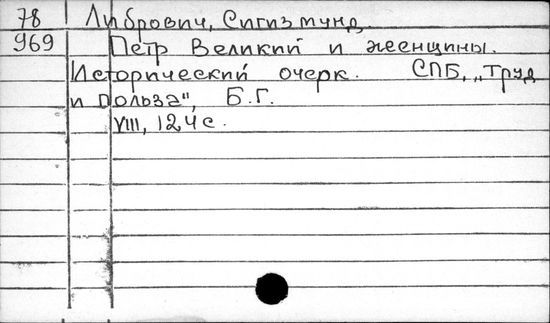 78 Либрович, Сигизмунд.
969 Петр Великий и женщины.
Исторический очерк. СПБ, „Труд
и польза", Б.Г.
VIII, 124 с.